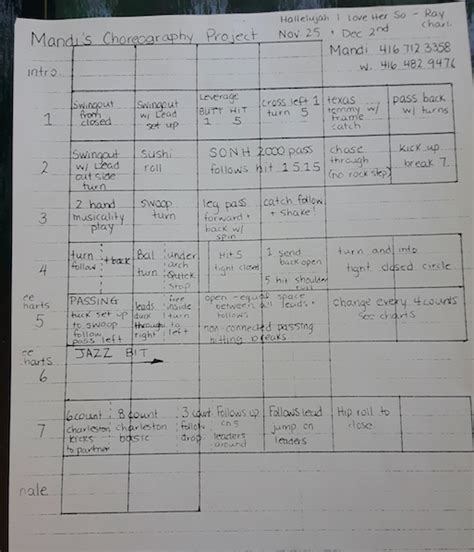 Hallelujah I Love Her So - Ray
Charl.
Mandi's Choreography Project
Nov. 25 + Dec 2nd
Mandi 416 712 3358
w. 416 482 9476
intro.
1
Swingout from closed
Swingout w/ Lead set up
Leverage BUTT HIT 1 5
cross left 1 turn 5
texas tommy w/ frame catch
pass back w/ turns
2
Swingout w/ Lead outside turn
Sushi roll
SONH 2000 pass
follows hit 1.5.1.5
chase through (no rock step)
kick up break 7
3
2 hand musicality play
swoop turn
leg pass forward + back w/ spin
catch follow + shake!
4
turn follow
+ back
Bal turn
under arch Quick Stop
Hit 5 tight closed
1 send back open
5 hit shoulder
turn and into tight closed circle
ee
harts
5
PASSING
tuck set up to swoop follow pass left
leads duck through to right
free inside turn
open - equal space between all leads + follows
non-connected passing hitting breaks
change every 4 counts
see charts
ee
harts
6
JAZZ BIT
7
6 count charleston kicks to partner
8 count charleston basic
3 count follow drop
Follows up on 5
leaders around
Follows lead jump on leaders
Hip roll to close
nale